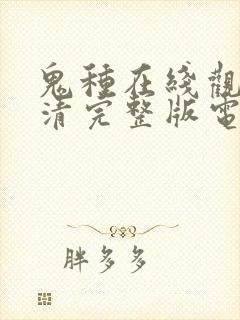 鬼種在綫觀
清完整版電
胖多多